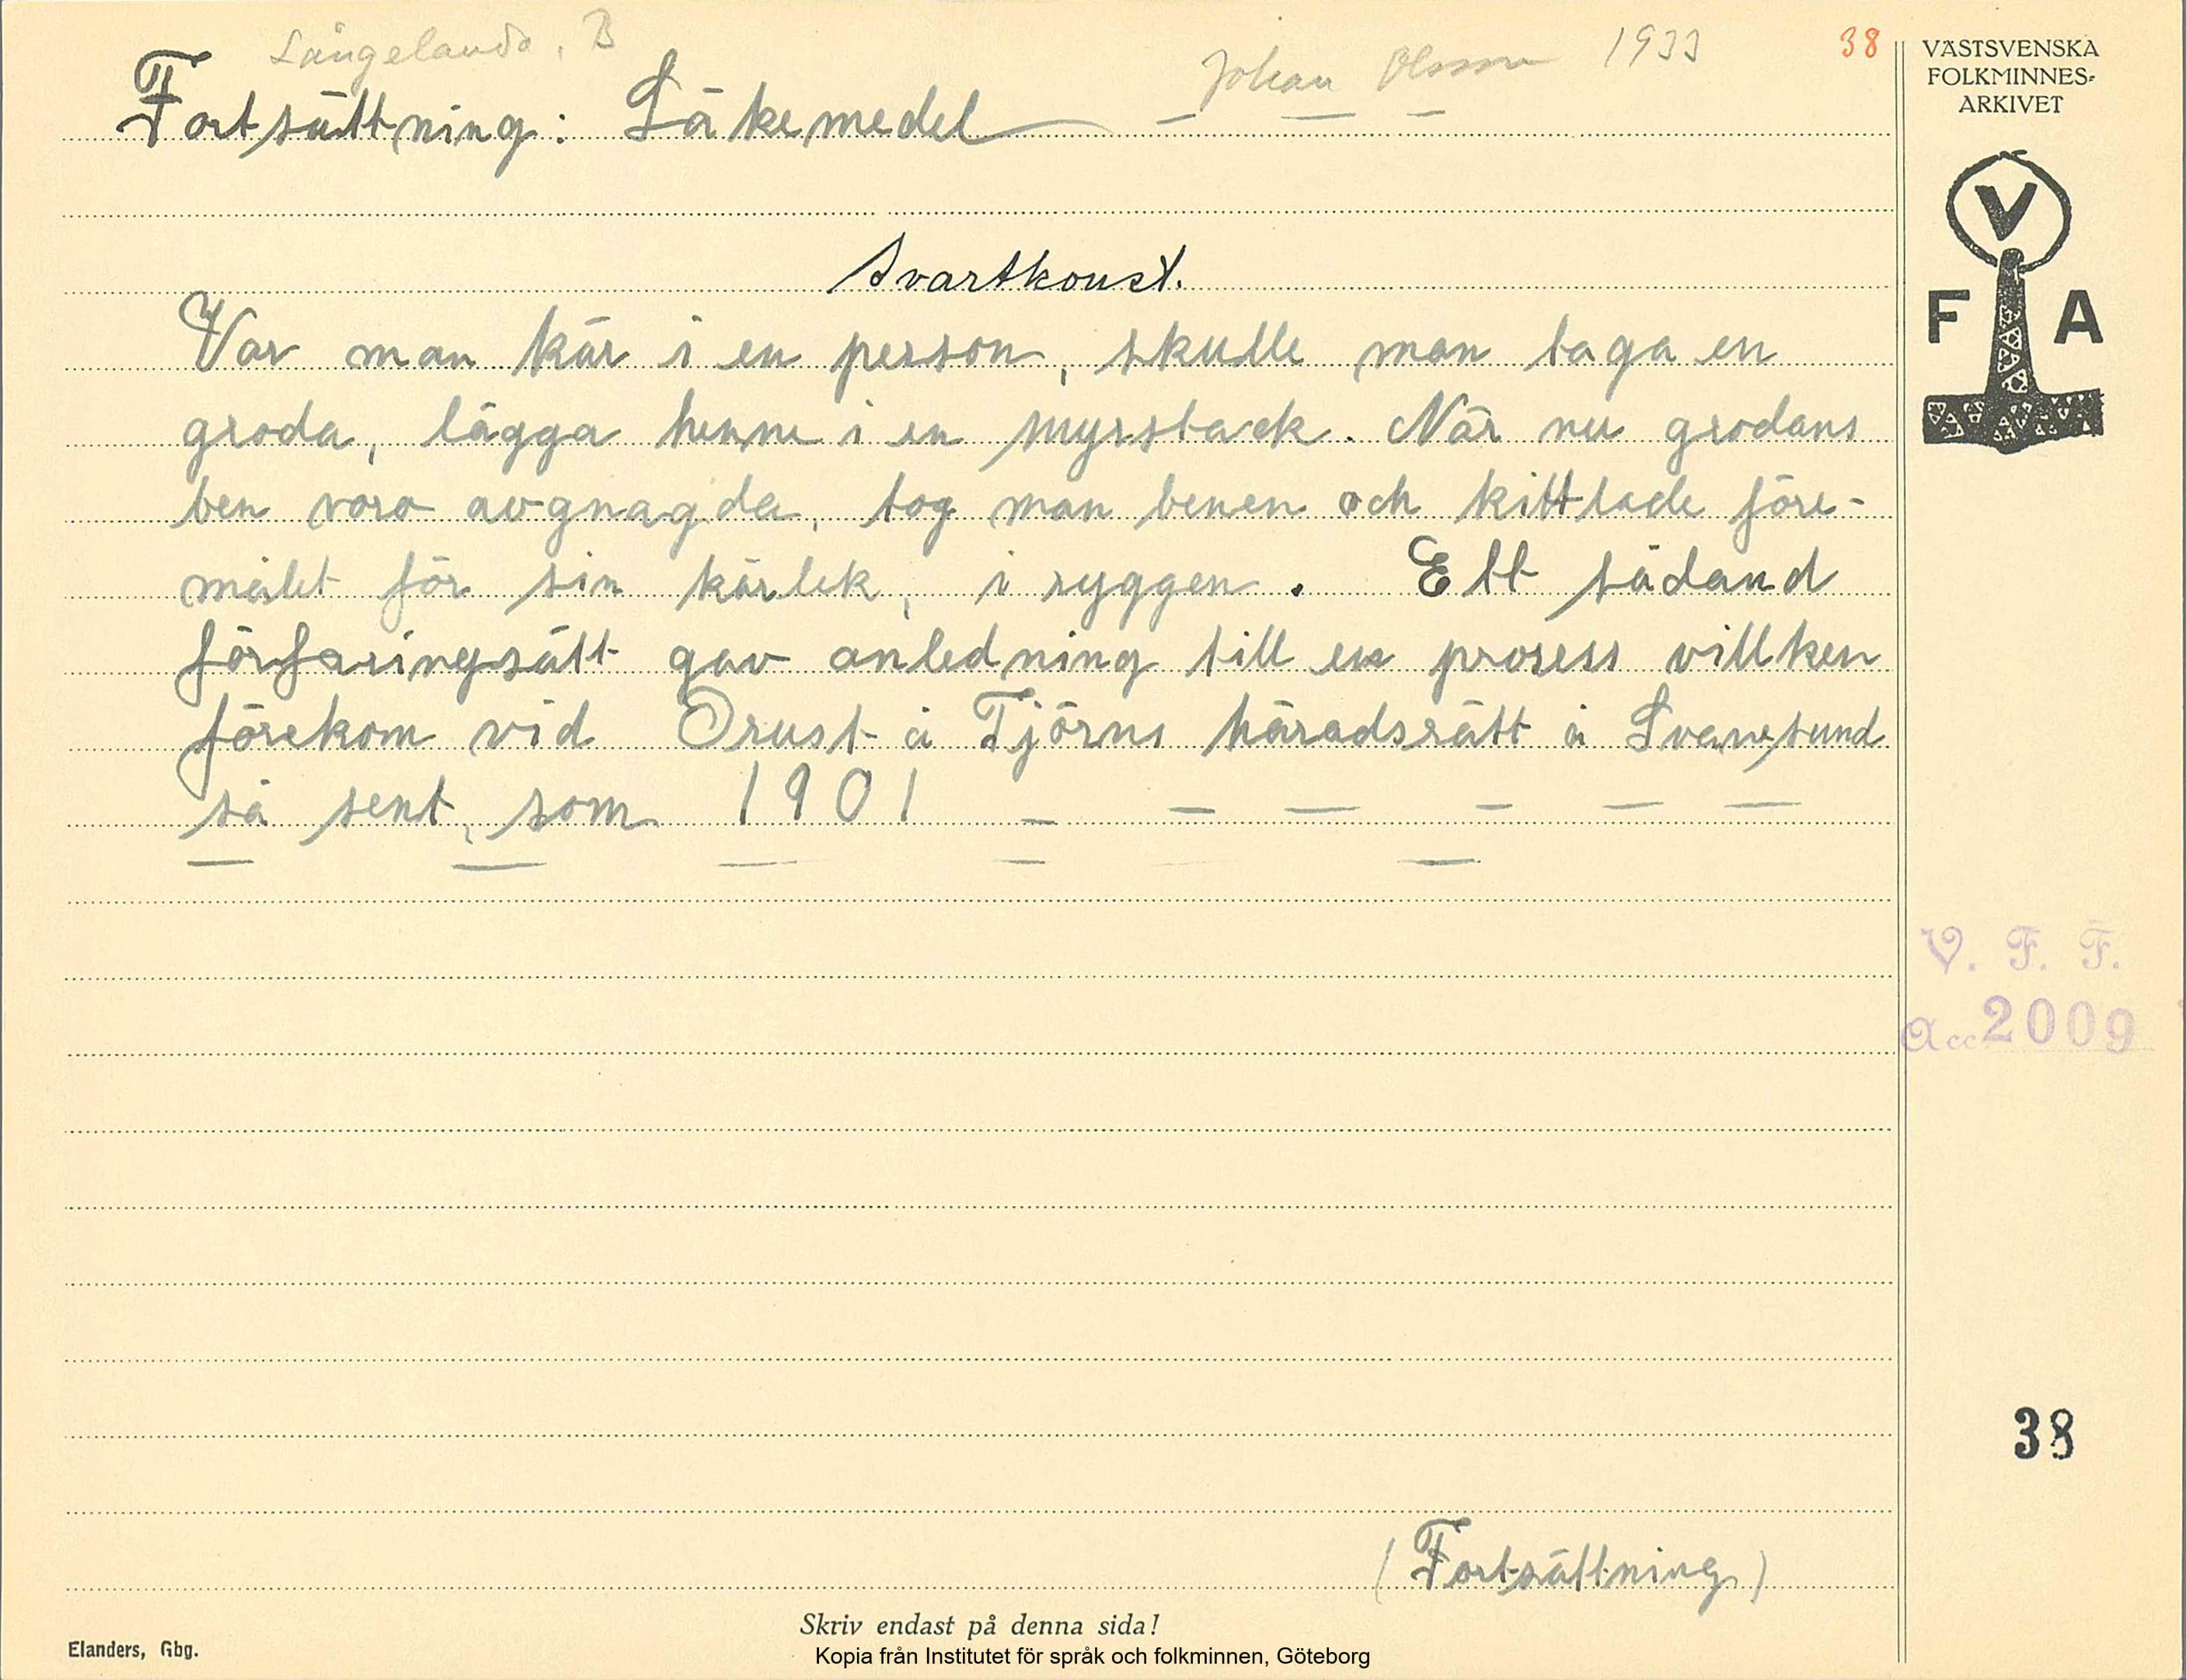 Långelanda, B
Johan Olsson 1933
38
Fortsättning: Läkemedel — — — —
Svartkonst.
Var man kär i en person, skulle man taga en
groda, lägga henne i en myrstack. När nu grodans
ben voro avgnagda, tog man benen och kittlade före-
målet för sin kärlek, i ryggen. Ett sådand
förfaringsätt gav anledning till en prosess villken
förekom vid Orust å Tjörns häradsrätt å Svanesund
så sent, som 1901 — — — — — —
— — — — —
(Fortsättning)
Skriv endast på denna sida!
Elanders, Gbg.
Kopia från Institutet för språk och folkminnen, Göteborg
VÄSTSVENSKA
FOLKMINNES-
ARKIVET
V
F A
V. F. F.
Acc 2009
38